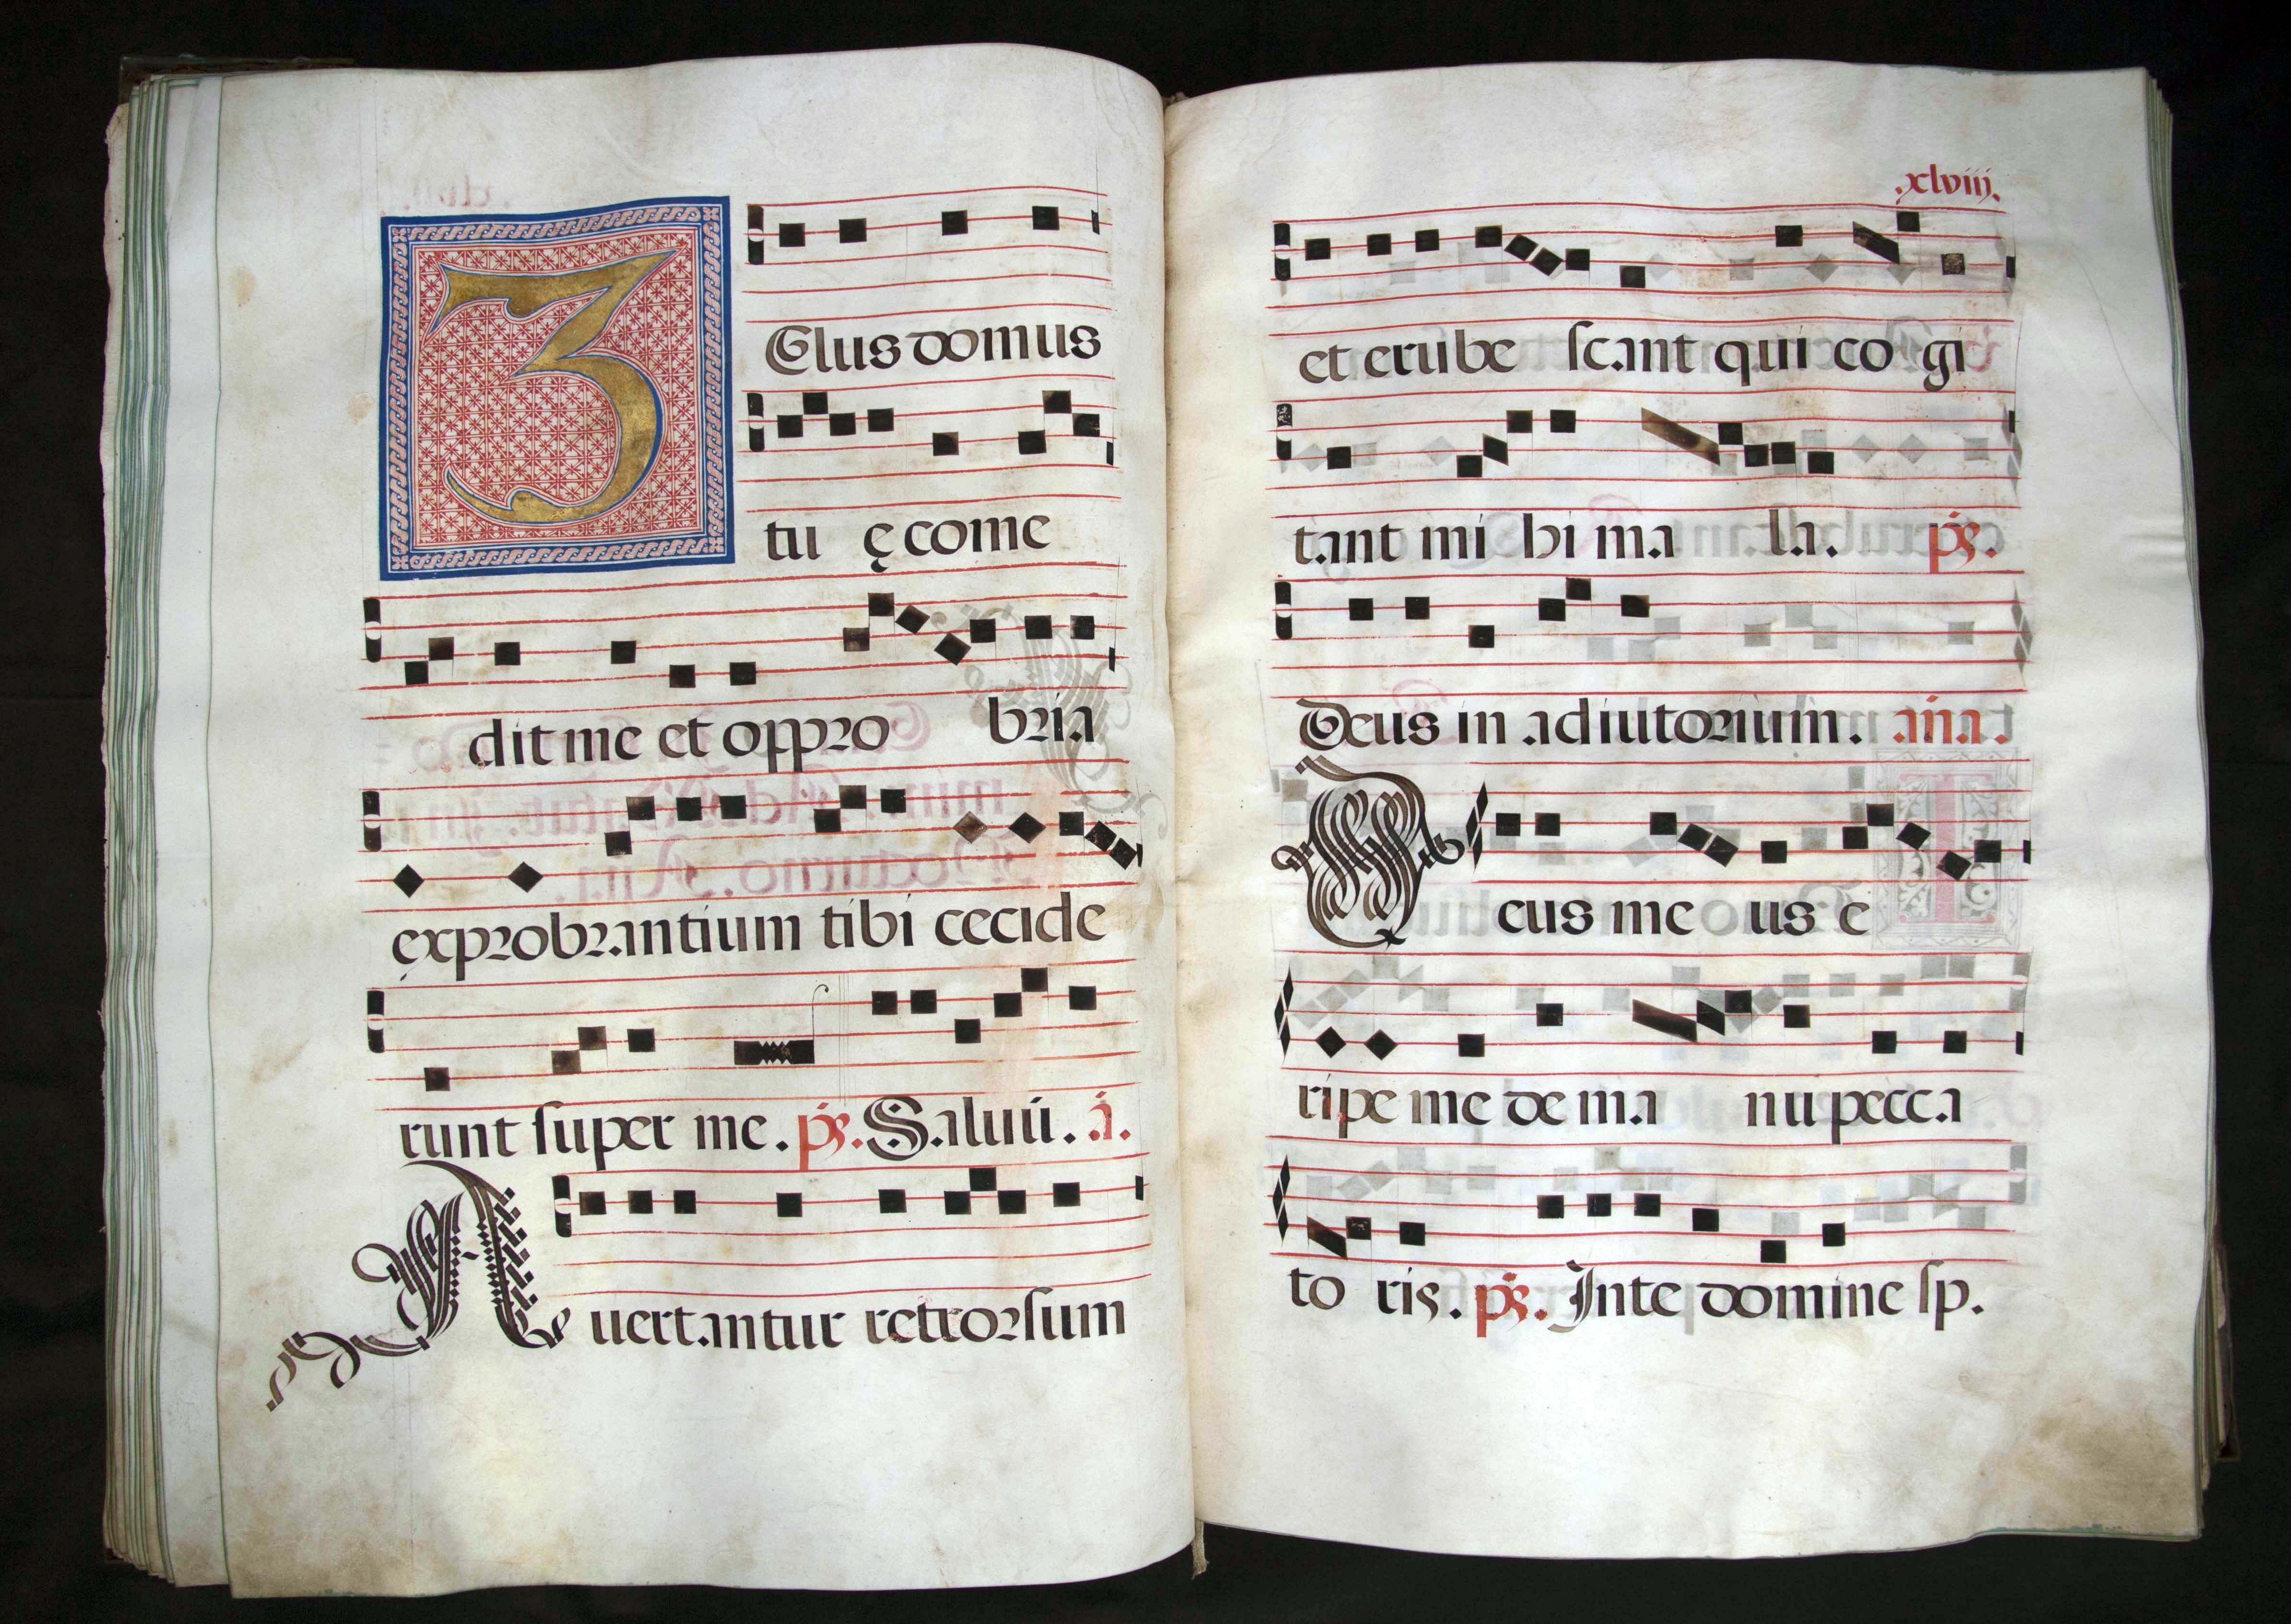 ZElus domus
tu ę come
dit me et oppro bria
exprobrantium tibi cecide
runt super me. ps. Saluū. a.
Auertantur retrorsum
xlviij.
et erube scant qui co gi
tant mi hi ma la. ps.
Deus in adiutorium. ana.
Deus me us e
ripe me de ma nu pecca
to ris. ps. In te domine sp.